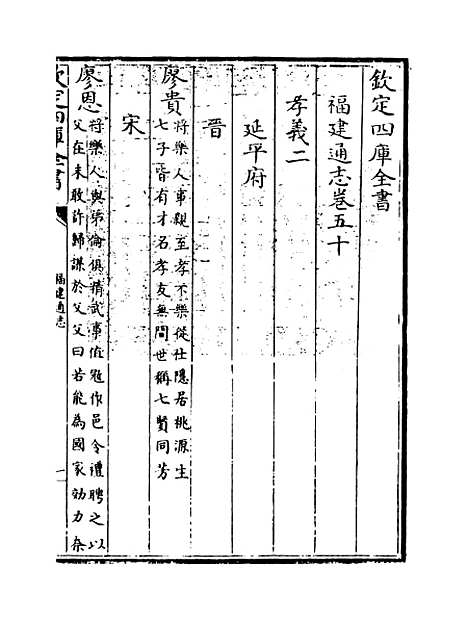 欽定四庫全書
福建通志卷五十
孝義二
延平府
晉
廖貴將樂人事親至孝不樂從仕隱居桃源生
七子皆有才名孝友無間世稱七賢同芳
宋
廖恩將樂人與弟倫俱精武事值冦作邑令禮聘之以
父在未敢許歸謀於父父曰若能為國家効力吾
欽定四庫全書
福建通志
一